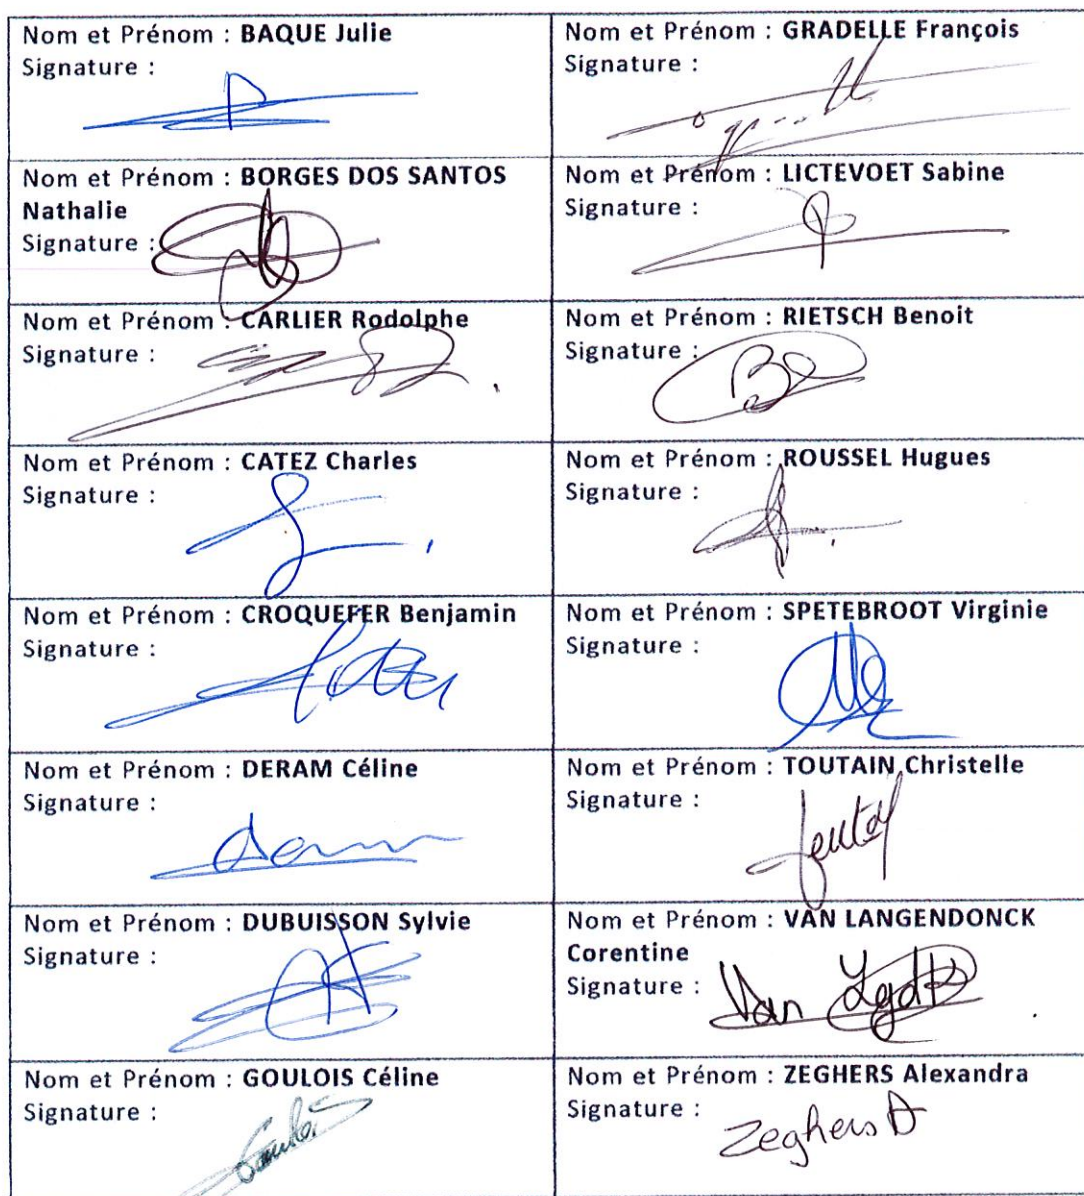 Nom et Prénom : BAQUE Julie
Signature :
Nom et Prénom : GRADELLE François
Signature :
Nom et Prénom : BORGES DOS SANTOS
Nathalie
Signature :
Nom et Prénom : LICTEVOET Sabine
Signature :
Nom et Prénom : CARLIER Rodolphe
Signature :
Nom et Prénom : RIETSCH Benoit
Signature :
Nom et Prénom : CATEZ Charles
Signature :
Nom et Prénom : ROUSSEL Hugues
Signature :
Nom et Prénom : CROQUEFER Benjamin
Signature :
Nom et Prénom : SPETEBROOT Virginie
Signature :
Nom et Prénom : DERAM Céline
Signature :
Nom et Prénom : TOUTAIN Christelle
Signature :
Nom et Prénom : DUBUISSON Sylvie
Signature :
Nom et Prénom : VAN LANGENDONCK
Corentine
Signature : Van
Nom et Prénom : GOULOIS Céline
Signature :
Nom et Prénom : ZEGHERS Alexandra
Signature : Zeghers A